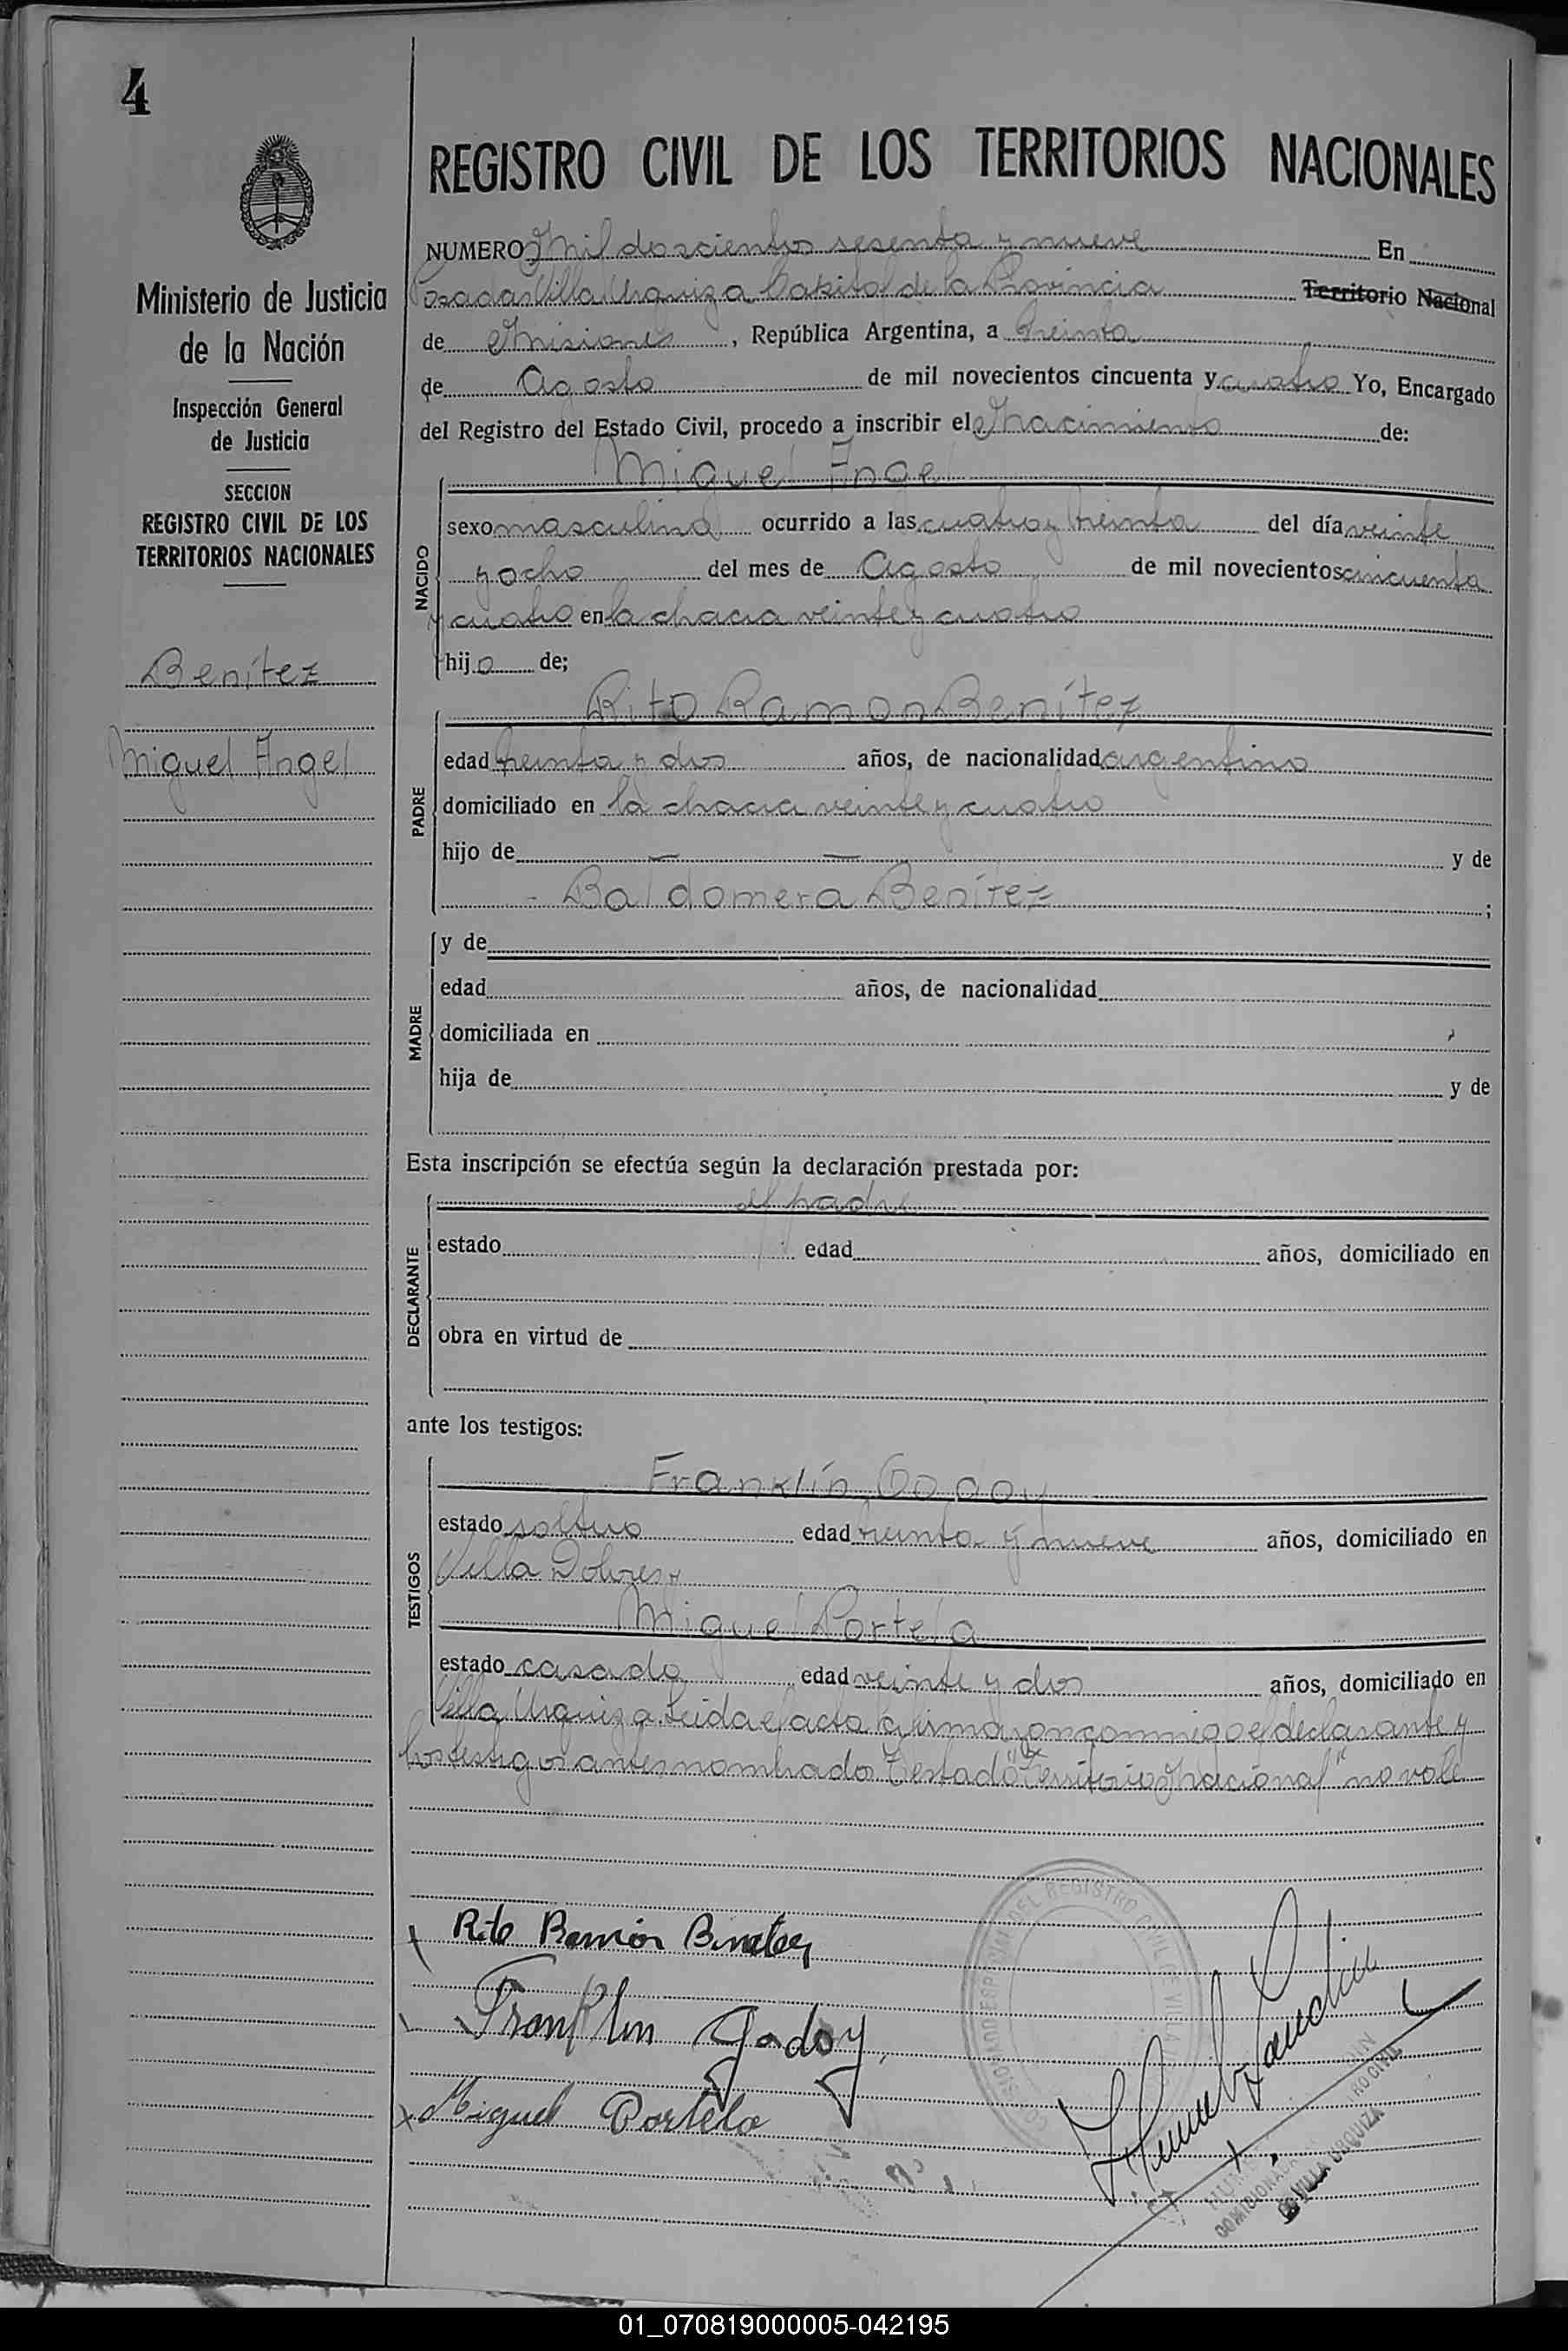 4
REGISTRO CIVIL DE LOS TERRITORIOS NACIONALES
Ministerio de Justicia
de la Nación
Inspección General
de Justicia
SECCION
REGISTRO CIVIL DE LOS
TERRITORIOS NACIONALES
Benítez
Miguel Angel
NUMERO Mil doscientos sesenta y nueve En
Posadas Villa Urquiza Capital de la Provincia Territorio Nacional
de Misiones, República Argentina, a treinta
de Agosto de mil novecientos cincuenta y cuatro Yo, Encargado
del Registro del Estado Civil, procedo a inscribir el Nacimiento de:
NACIDO
Miguel Angel
sexo masculino ocurrido a las cuatro y treinta del día veinte
y ocho del mes de Agosto de mil novecientos cincuenta
y cuatro en la chacra veinte y cuatro
hijo de;
PADRE
Rito Ramon Benítez
edad treinta y dos años, de nacionalidad argentino
domiciliado en la chacra veinte y cuatro
hijo de — — y de
- Baldomera Benítez ;
MADRE
y de
edad años, de nacionalidad
domiciliada en ,
hija de y de
Esta inscripción se efectúa según la declaración prestada por:
DECLARANTE
el padre
estado edad años, domiciliado en
obra en virtud de
ante los testigos:
TESTIGOS
Franklín Godoy
estado soltero edad treinta y nueve años, domiciliado en
Villa Dolores y
Miguel Portela
estado casado edad veinte y dos años, domiciliado en
Villa Urquiza. Leida el acta la firmaron conmigo el declarante y
los testigos antes nombrado. Testado "Territorio Nacional" no vale
Rito Ramón Benitez
Franklin Godoy
Miguel Portela
DEL REGISTRO CIVIL DE VILLA
DE VILLA URQUIZA
01_070819000005-042195